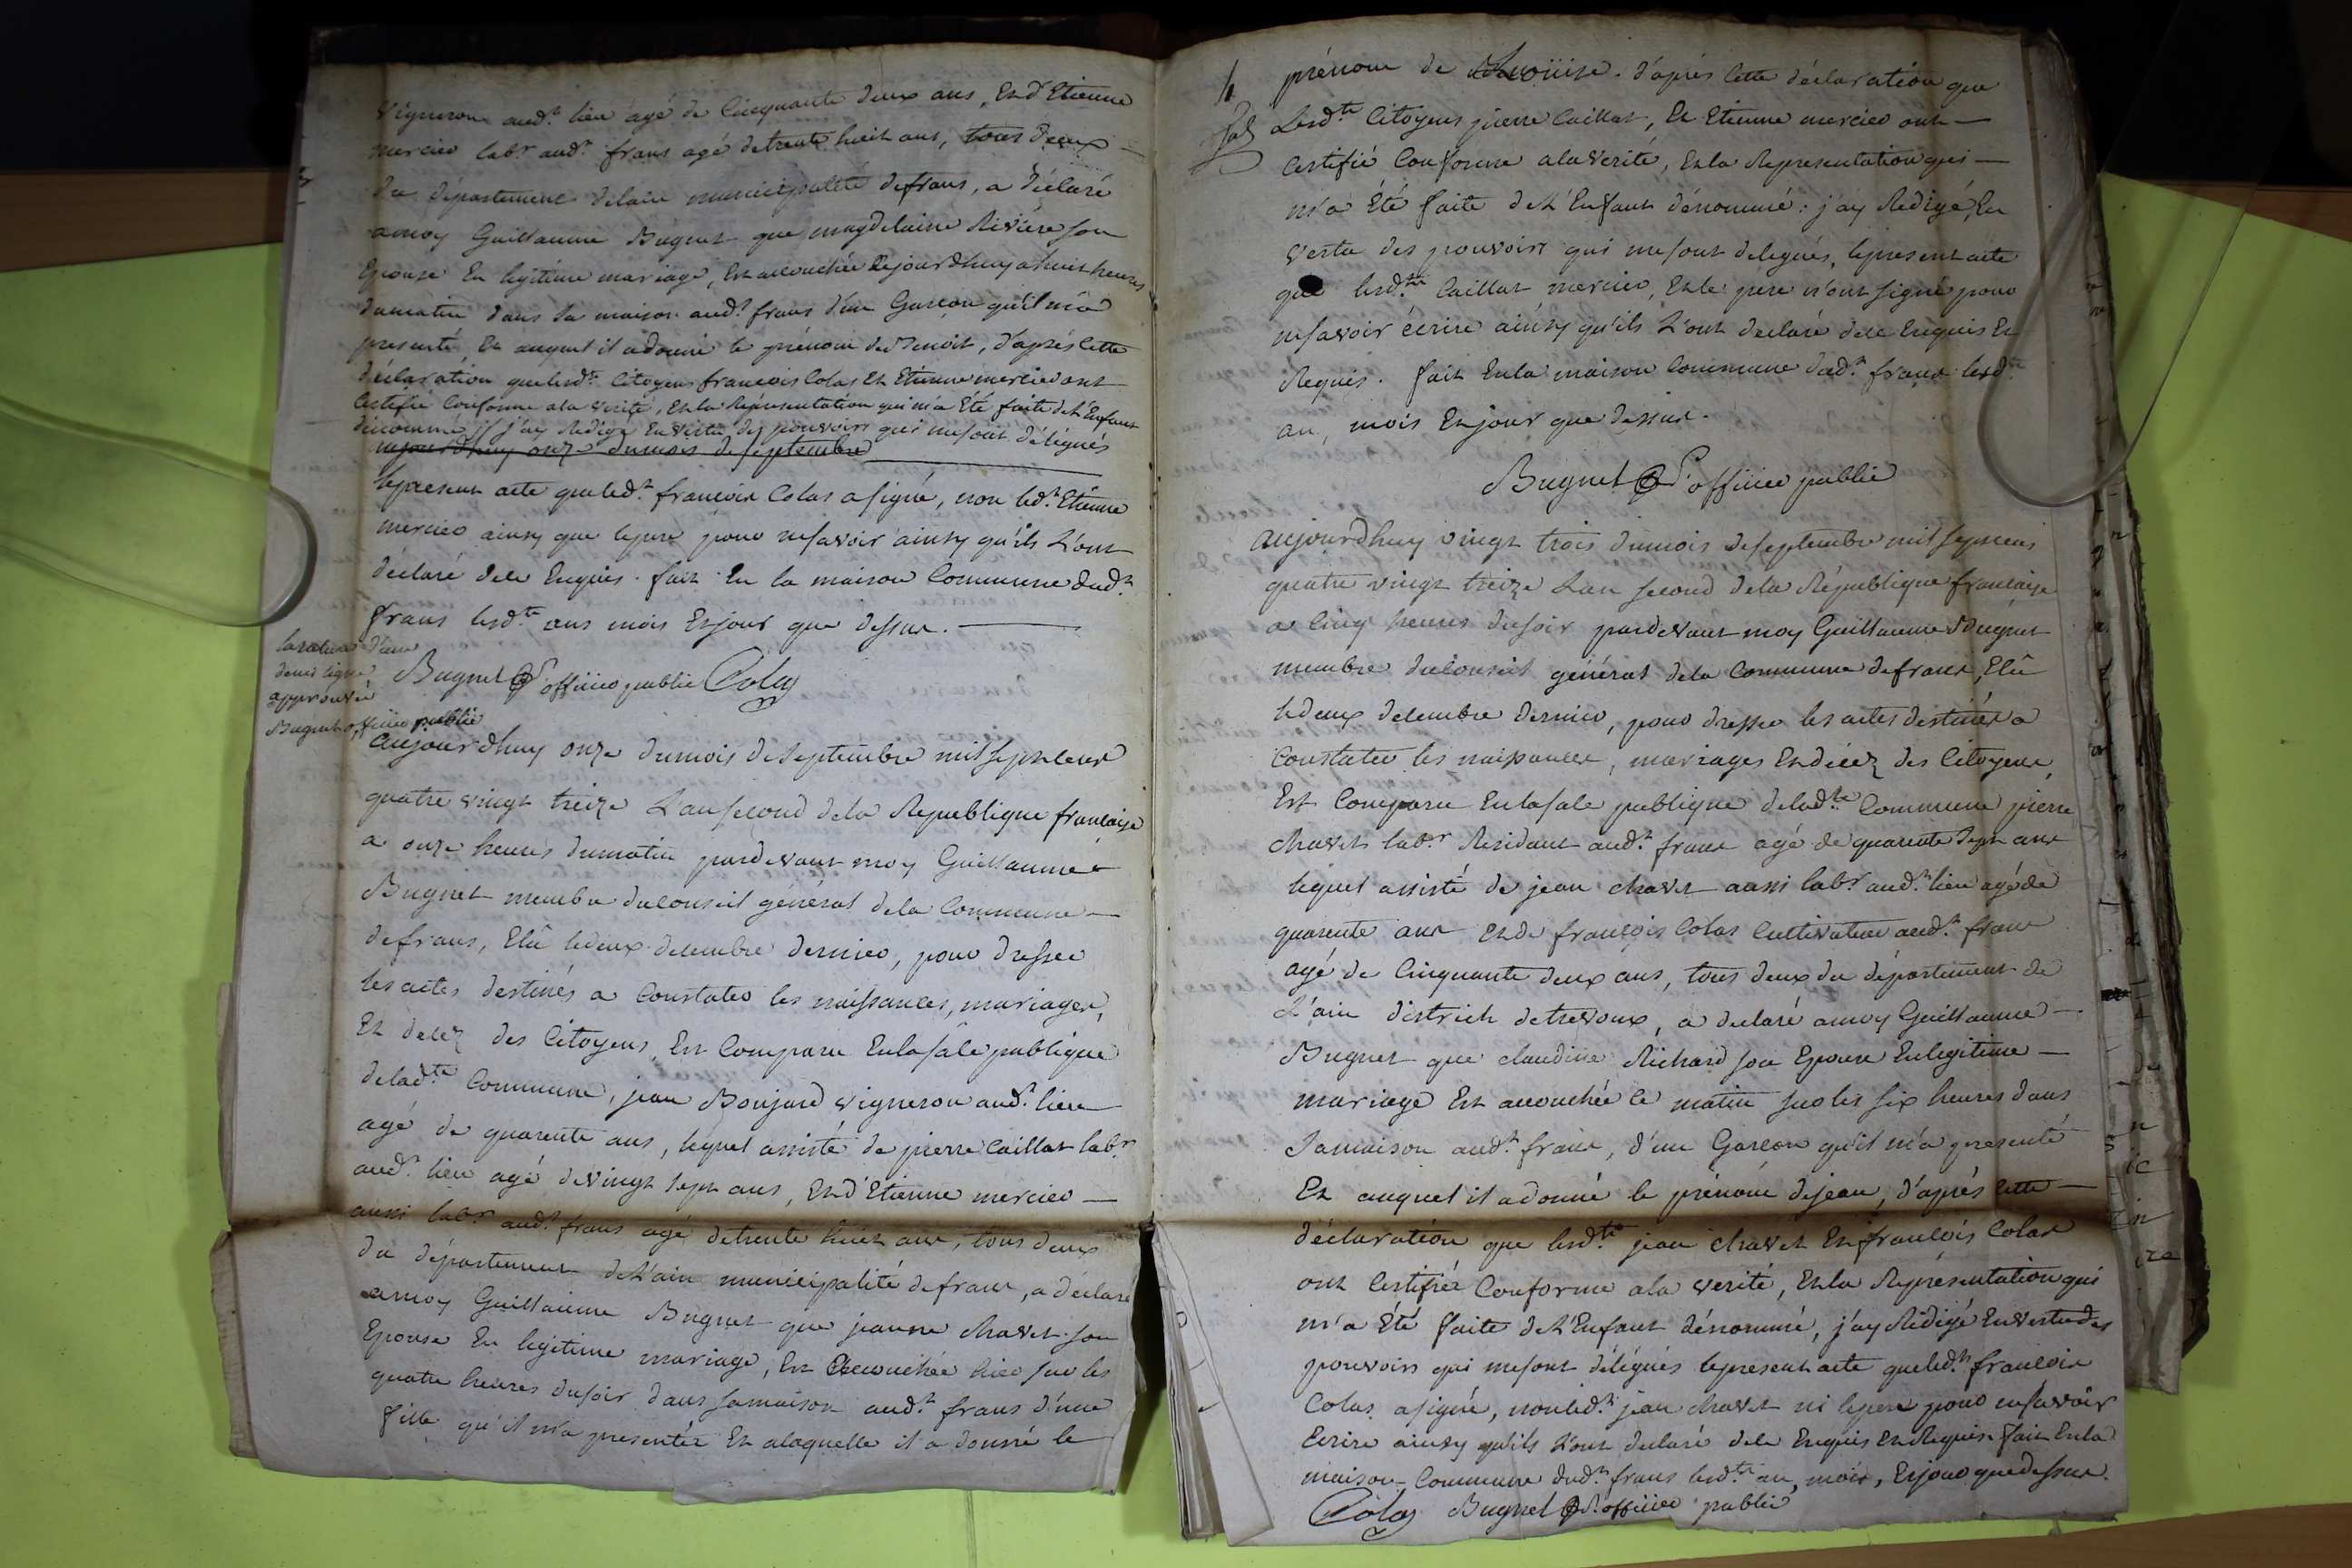 vigneron aud.t lieu agé de Cinquante deux ans, Et d'Etienne
mercier lab.r aud.t frans agé detrente huit ans, tous deux
du département delain municipalité defrans, a déclaré
amoy Guillaume Bugnet que magdelaine Rivière son
Epouse En legitime mariage, Est accouchée cejourdhuy a huit heures
dumatin dans sa maison aud.t frans d'un Garçon qu'il m'a
presenté, Et auquel il adonné le prénom de Benoit, d'après Cette
déclaration que lesd.ts Citoyens françois Colas Et Etienne mercier ont
Certifié Conforme ala verité, Et la Représentation qui m'a Été faite de L'Enfant
dénommé, j'ay Redigé En vertu des pouvoirs qui mesont délégués
aujourdhuy onze dumois de septembre
lepresent acte que led.t francois Colas asigné, non led.t Etienne
mercier ainsy que lepere pour nesavoir ainsy qu'ils L'ont
déclaré dece Enquis. fait En la maison Commune dud.t
frans lesd.ts ans mois Etjour que dessus.
larature d'une
demi ligne
approuvée
Bugnet officier public
Bugnet officier public Colas
aujourdhuy onze dumois deSeptembre mil septcens
quatre vingt treize L'ansecond dela Republique française
a onze heures dumatin pardevant moy Guillaume
Bugnet membre duconseil général dela Commune
defrans, Elû ledeux decembre dernier, pour dresser
les actes destinés a Constater les naissances, mariages,
Et decez des Citoyens, Est Comparu Enlasale publique
delad.te Commune, jean Bonjard vigneron aud.t lieu
agé de quarente ans, lequel assisté de pierre Caillat lab.r
aud.t lieu agé devingt sept ans, Et d'Etienne mercier
aussi lab.r aud.t frans agé detrente huit ans, tous deux
du département deL'ain municipalité defrans, a déclaré
amoy Guillaume Bugnet que jeanne chavet son
Epouse En legitime mariage, Est accouchée hier sur les
quatre heures dusoir dans samaison aud.t frans d'une
fille qu'il m'a presentée Et alaquelle il a donné le
prénom de Louise. d'après Cette déclaration que
Lesd.ts Citoyens pierre Caillat, Et Etienne mercier ont
Certifié Conforme ala verité, Et la Representation qui
m'a Été faite deL'Enfant dénommé: j'ay Redigé, En
vertu des pouvoirs qui mesont delegués, lepresent acte
que lesd.ts Caillat mercier, Et le pere n'ont signé pour
nesavoir écrire ainsy qu'ils L'ont declaré dece Enquis Et
Requis. fait Enla maison Commune dud.t frans lesd.ts
an, mois Etjour que dessus.
Bugnet officier public
aujourdhuy vingt trois dumois deseptembre mil septcens
quatre vingt treize L'an second dela République française
a Cinq heures dusoir pardevant moy Guillaume Bugnet
membre duconseil général dela Commune defrans, Elû
ledeux decembre dernier, pour dresser les actes destinés a
Constater les naissances, mariages Et décéz des Citoyens,
Est Comparu Enlasale publique delad.te Commune pierre
chavet lab.r Résidant aud.t frans agé de quarente sept ans
lequel assisté de jean chavet aussi lab.r aud.t lieu agé de
quarente ans Et de françois Colas Cultivateur aud.t frans
agé de Cinquante deux ans, tous deux du département de
L'ain district detrevoux, a declaré amoy Guillaume
Bugnet que claudine Richard son Epouse Enlegitime
mariage Est accouchée Ce matin sur les six heures dans
samaison aud.t frans, d'un Garçon qu'il m'a presenté
Et auquel il adonné le prénom dejean, d'après Cette
déclaration que lesd.ts jean chavet Et françois Colas
ont Certifiés Conforme ala verité, Et la Représentation qui
m'a Été faite deL'Enfant dénommé, j'ay Rédigé En vertu des
pouvoirs qui mesont délégués lepresent acte que led.t francois
Colas asigné, non led.t jean chavet ni lepere pour nesavoir
Ecrire ainsy qu'ils L'ont declaré dece Enquis Et Requis. fait Enla
maison Commune dud.t frans lesd.ts an, mois, Etjour que dessus.
Colas Bugnet officier public